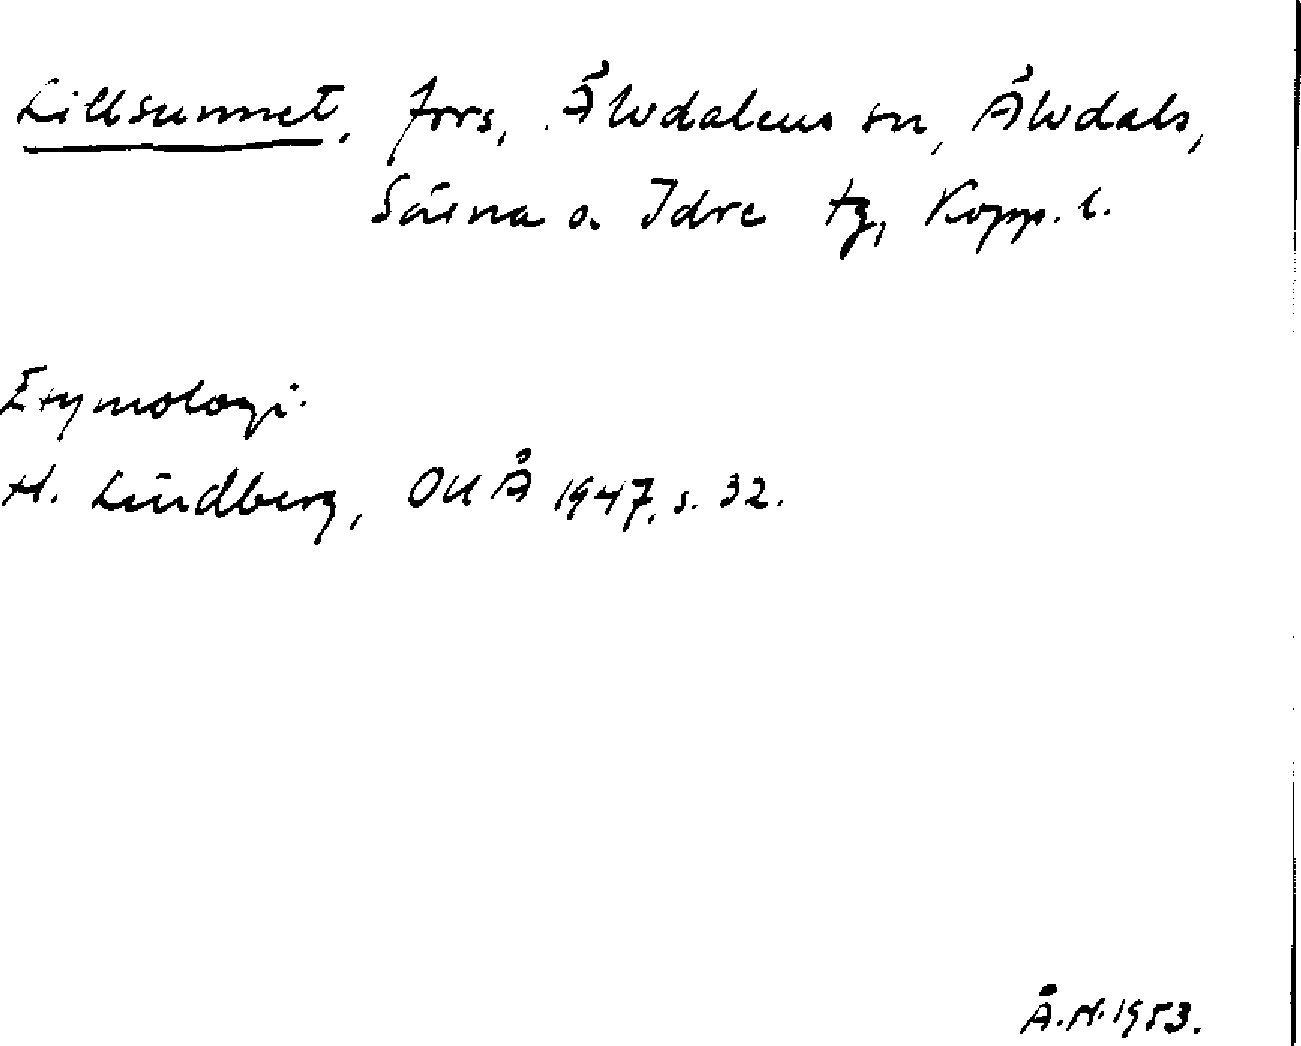 Lillsunnet, fors, Älvdalens sn, Älvdals,
Särna o. Idre tg, Kopp. l.
Etymologi.
H. Lindberg, OUÅ 1947, s. 32.
Å. H. 1953.